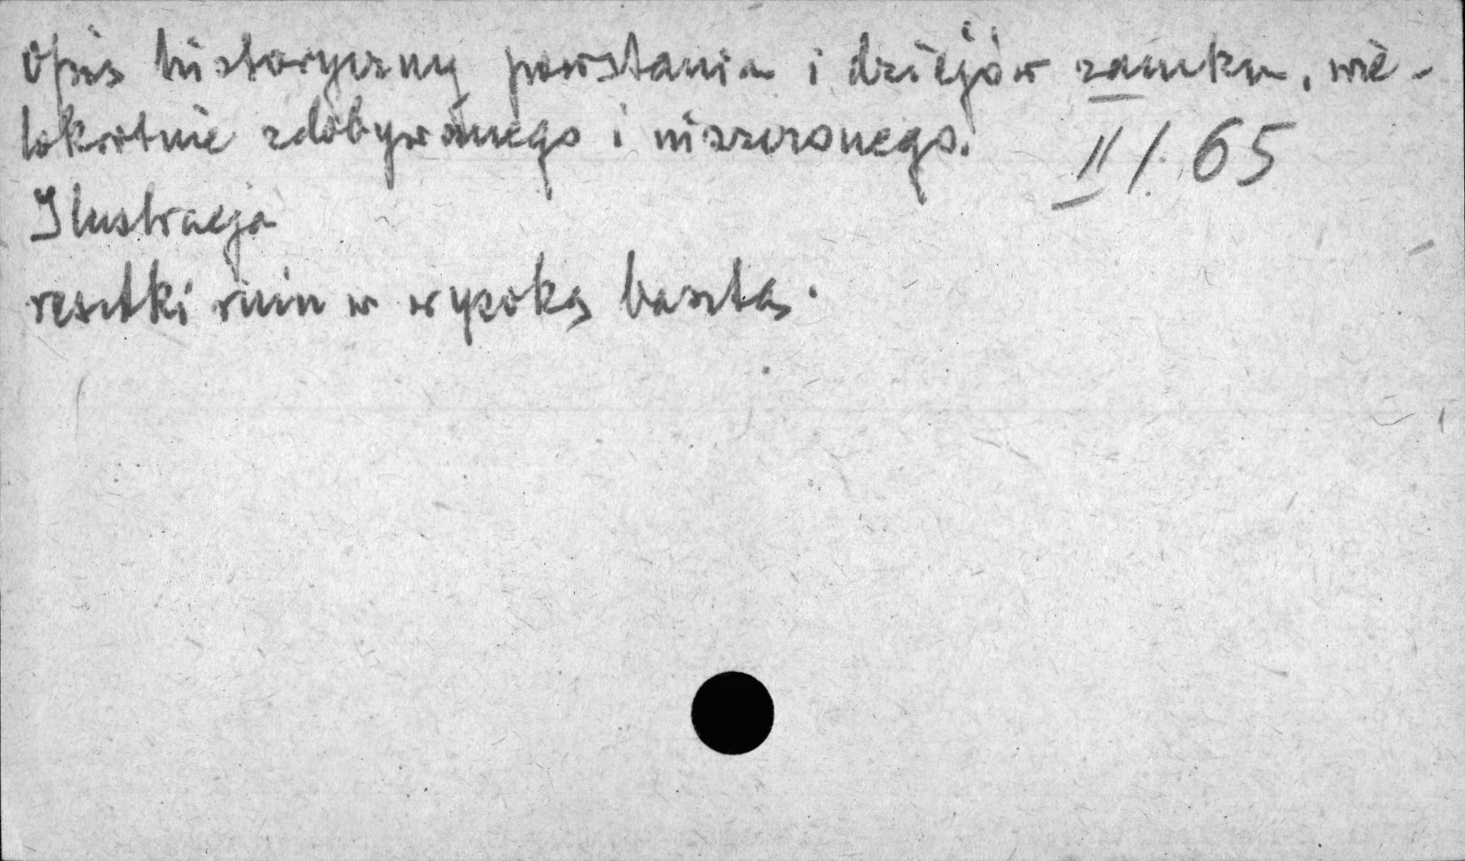 Opis historyczny powstania i dziejów zamku, wie-
lokrotnie zdobywanego i niszczonego. II/65
Ilustracja
resztki ruin w wysoką basztą.